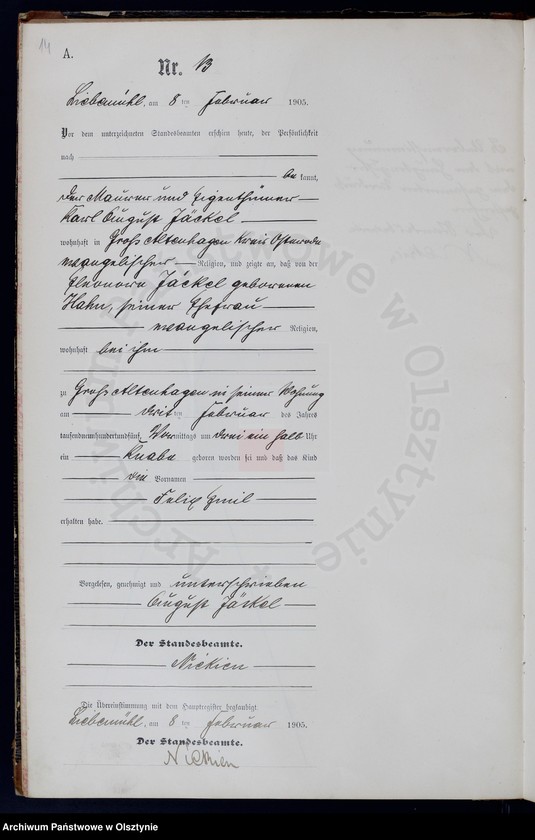 14
A.
Nr. 13
Liebemühl, am 8 ten Februar 1905.
Vor dem unterzeichneten Standesbeamten erschien heute, der Persönlichkeit
nach
be kannt,
der Maurer und Eigenthümer
Karl August Jäckel
wohnhaft in Groß Altenhagen Kreis Osterode
evangelischer Religion, und zeigte an, daß von der
Eleonore Jäckel geborenen
Hahn, seiner Ehefrau
evangelischer Religion,
wohnhaft bei ihm
zu Groß Altenhagen in seiner Wohnung
am dritten Februar des Jahres
tausendneunhundertundfünf, Vormittags um drei ein halb Uhr
ein Knabe geboren worden sei und daß das Kind
die Vornamen
Felix Emil
erhalten habe.
Vorgelesen, genehmigt und unterschrieben
August Jäckel
Der Standesbeamte.
Nickien
Die Übereinstimmung mit dem Hauptregister beglaubigt
Liebemühl, am 8 ten Februar 1905.
Der Standesbeamte.
Nickien
Archiwum Państwowe w Olsztynie
Archiwum Państwowe w Olsztynie